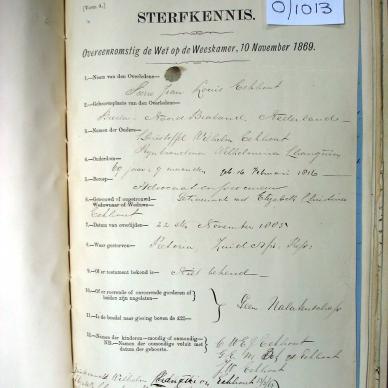 [Form A.]
0/1013
STERFKENNIS.
Overeenkomstig de Wet op de Weeskamer, 10 November 1869.
1.—Naam van den Overledene
Pierre Jean Louis Eckhout
2.—Geboorteplaats van den Overledene
Breda Noord Braband Nederland
3.—Namen der Ouders
Christoffel Wilhelm Eckhout
Wilhelmina
4.—Ouderdom
69 jaar 9 maanden geb. de Februari 1816
5.—Beroep
Advocaat en procureur
6.—Gehuwd of ongetrouwd
Weduwnaar of Weduwe
Getrouwd met Elizabeth Christina
Eckhout
7.—Datum van overlijden
22 November 1885
8.—Waar gestorven
Pretoria, Zuid Afr. Rep.
9.—Of er testament bekend is
Niet bekend
10.—Of er roerende of onroerende goederen of beiden zijn nagelaten
Geen Nalatenschap
11.—Is de boedel naar gissing boven de £25
12.—Namen der kinderen—mondig of onmondig—
NB.—Namen der onmondigen voluit met datum der geboorte.
Eckhout
Eckhout
Eckhout
Wilhelm Eckhout